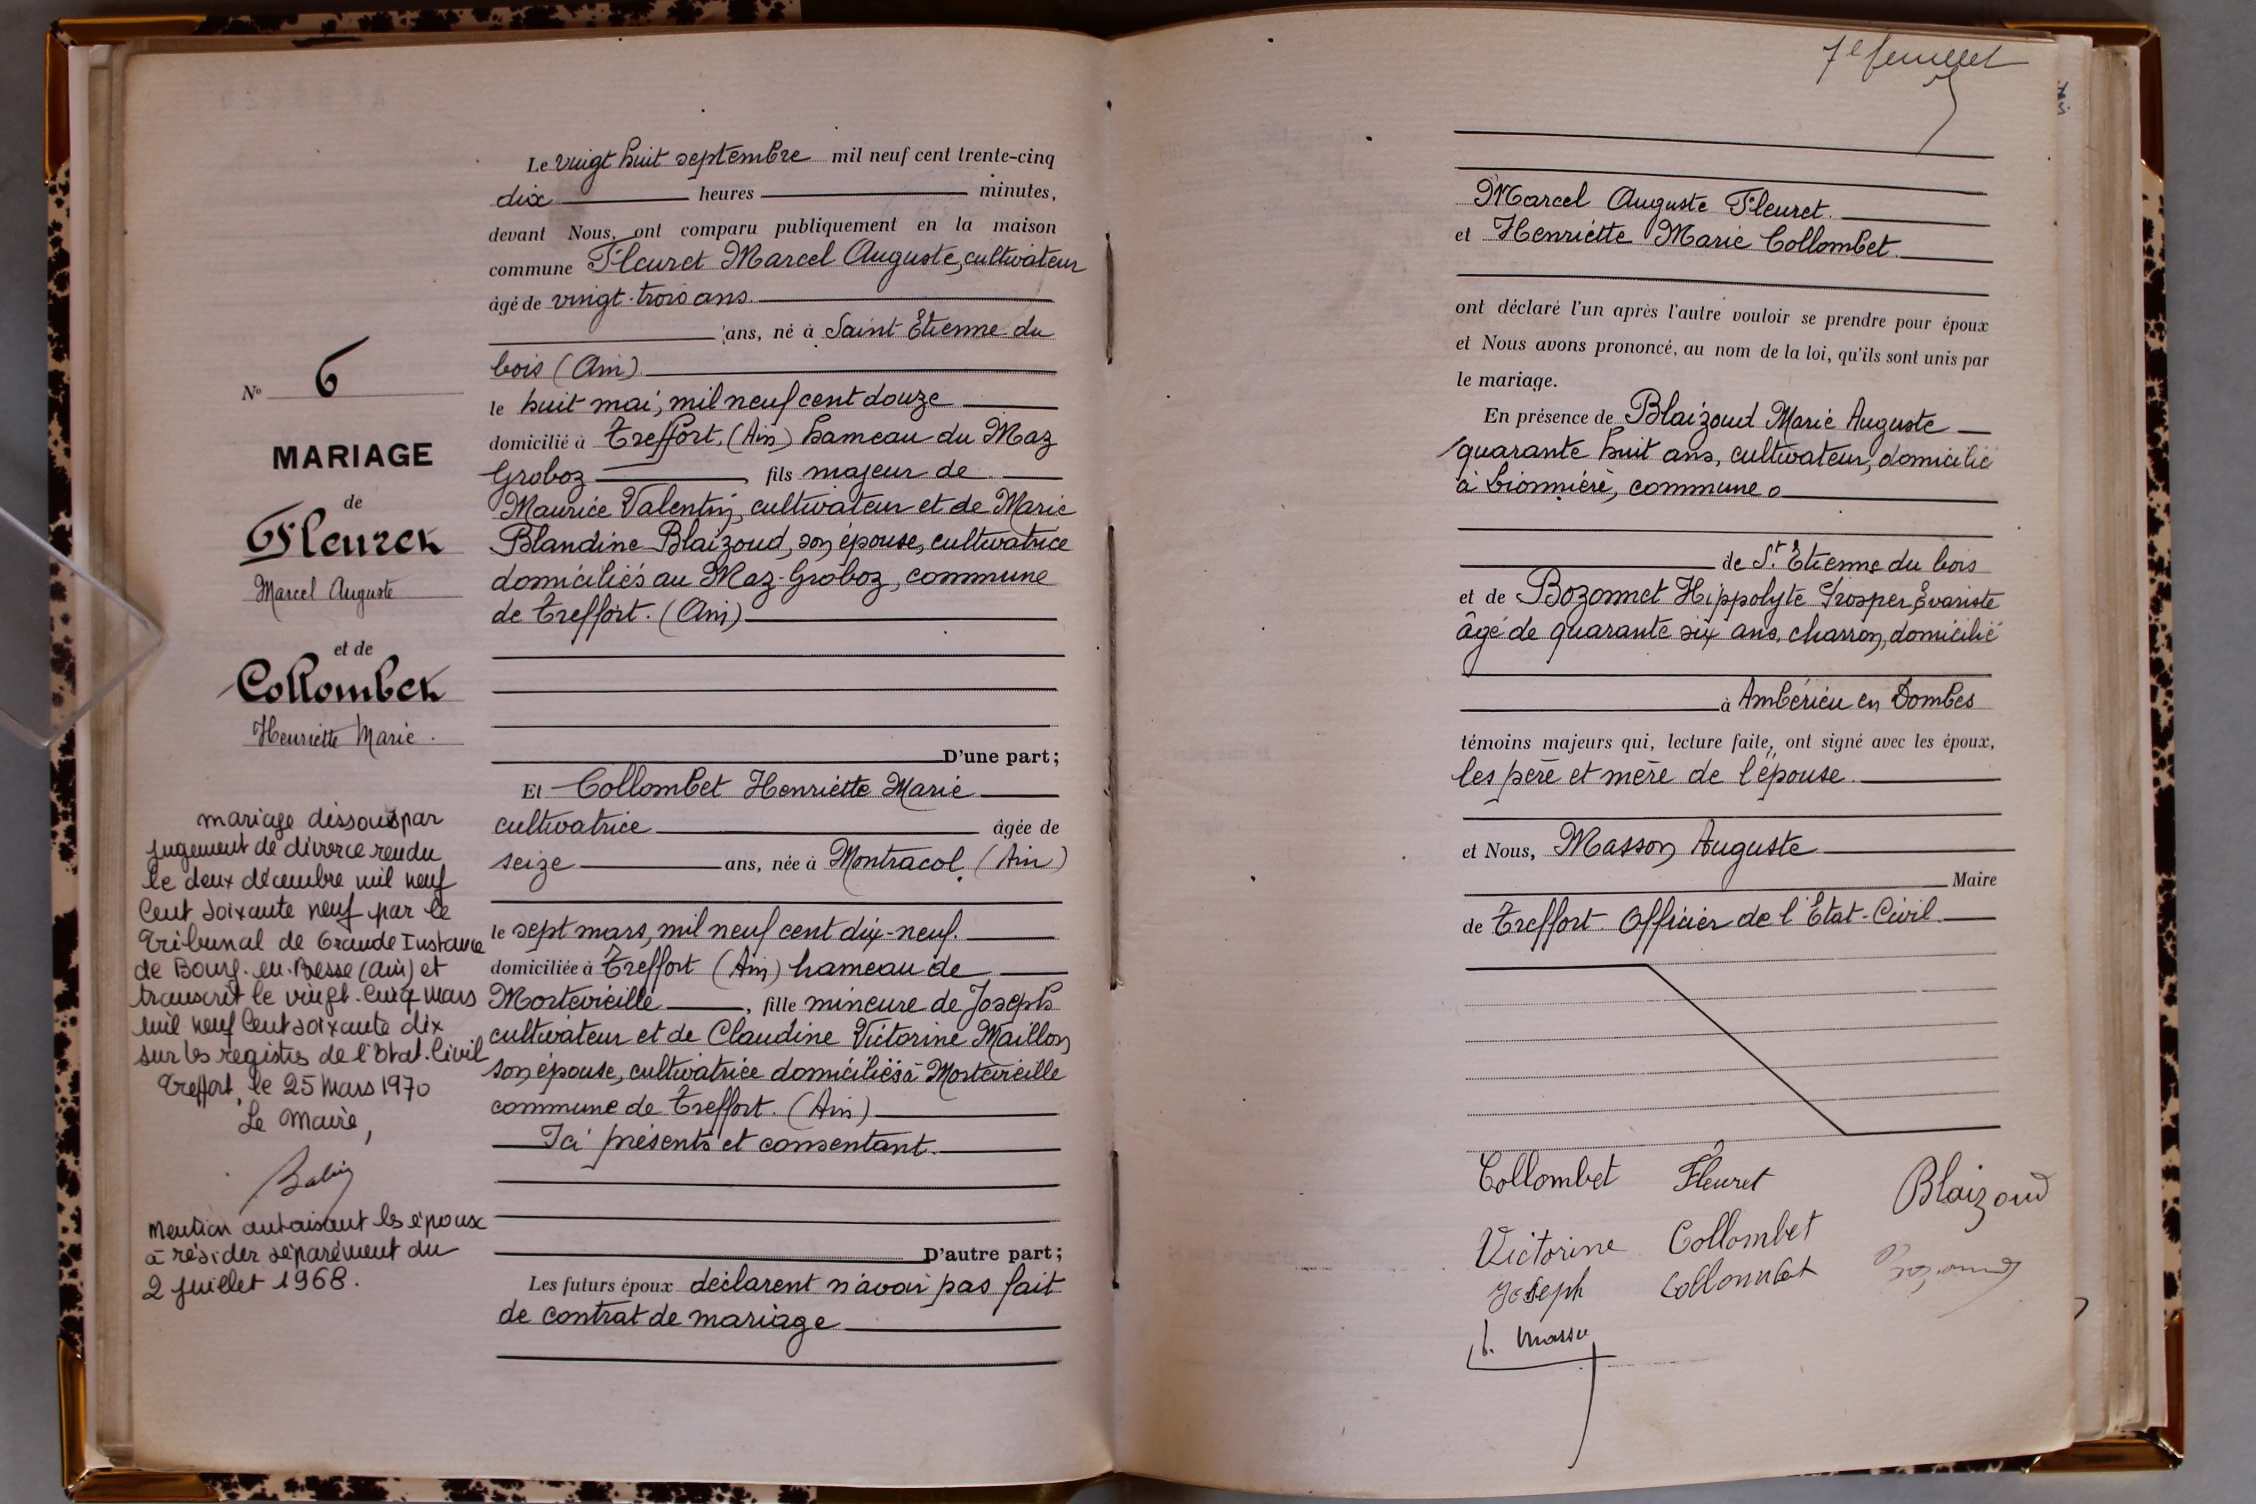 N° 6
MARIAGE
de
Fleuret
Marcel Auguste
et de
Collombet
Henriette Marie.
mariage dissous par
jugement de divorce rendu
le deux décembre mil neuf
cent soixante neuf par le
Tribunal de Grande Instance
de Bourg-en-Bresse (Ain) et
transcrit le vingt-cinq mars
mil neuf cent soixante dix
sur les registres de l'Etat-Civil
Treffort, le 25 Mars 1970
Le Maire,
Mention autorisant les époux
à résider séparément du
2 juillet 1968.
Le vingt huit septembre mil neuf cent trente-cinq
dix heures minutes,
devant Nous, ont comparu publiquement en la maison
commune Fleuret Marcel Auguste, cultivateur
âgé de vingt-trois ans.
ans, né à Saint Etienne du
bois (Ain).
le huit mai, mil neuf cent douze
domicilié à Treffort, (Ain) hameau du Maz
Groboz, fils majeur de
Maurice Valentin, cultivateur et de Marie
Blandine Blaizoud, son épouse, cultivatrice
domiciliés au Maz-Groboz, commune
de Treffort. (Ain)
D'une part;
Et Collombet Henriette Marie
cultivatrice âgée de
seize ans, née à Montracol (Ain)
le sept mars, mil neuf cent dix-neuf.
domiciliée à Treffort (Ain) hameau de
Mortevieille, fille mineure de Joseph
cultivateur et de Claudine Victorine Maillon
son épouse, cultivatrice domiciliés à Mortevieille
commune de Treffort. (Ain)
Ici présents et consentant.
D'autre part;
Les futurs époux déclarent n'avoir pas fait
de contrat de mariage
7e feuillet
Marcel Auguste Fleuret.
et Henriette Marie Collombet.
ont déclaré l'un après l'autre vouloir se prendre pour époux
et Nous avons prononcé, au nom de la loi, qu'ils sont unis par
le mariage.
En présence de Blaizoud Marie Auguste
quarante huit ans, cultivateur, domicilié
à Lionnière, commune
de St Etienne du bois
et de Bozonnet Hippolyte Prosper Evariste
âgé de quarante six ans, charron, domicilié
à Ambérieu en Dombes
témoins majeurs qui, lecture faite, ont signé avec les époux,
les père et mère de l'épouse.
et Nous, Masson Auguste
Maire
de Treffort Officier de l'Etat-Civil
Collombet Fleuret Blaizoud
Victorine Collombet
Joseph Collombet